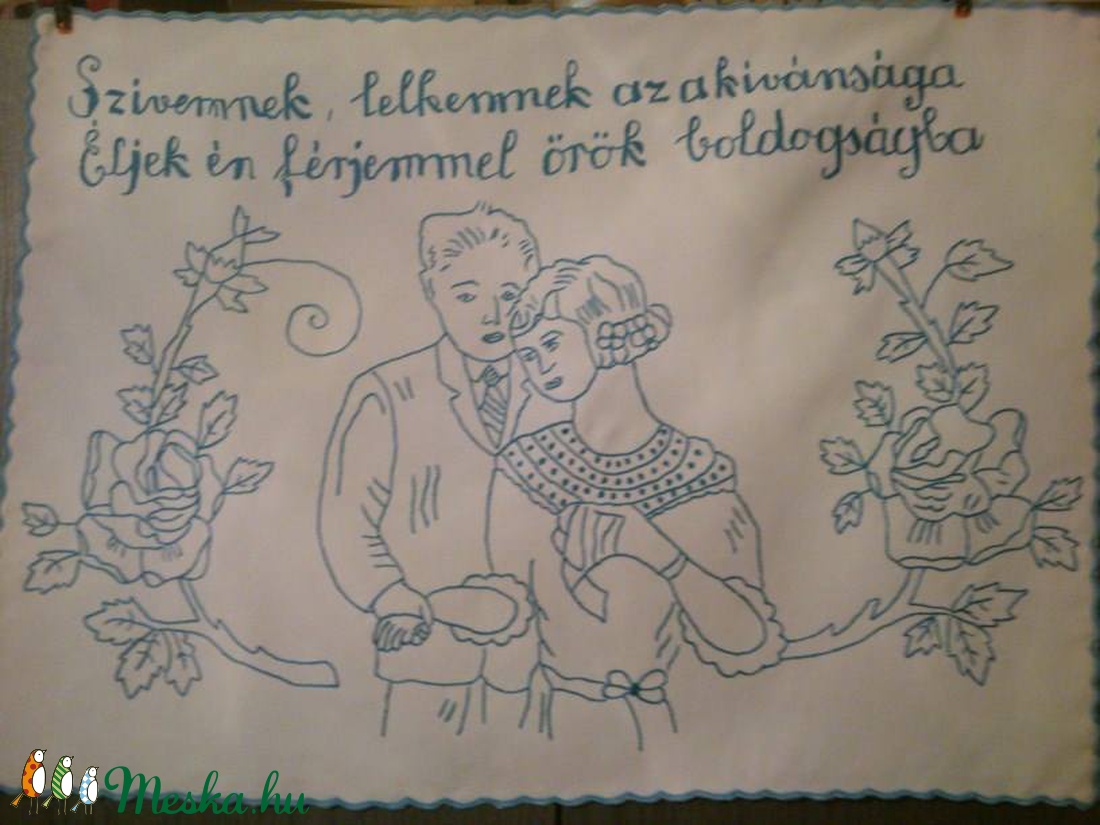 Szivemnek, lelkemnek az a kivánsága
Éljek én férjemmel örök boldogságba
Meska.hu